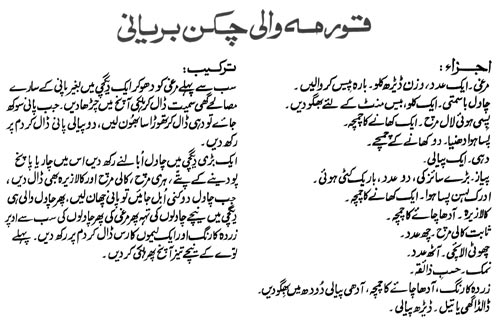 قورمہ والی چکن بریانی
اجزاء:
مرغی۔ ایک عدد، وزن ڈیڑھ کلو۔ بارہ پیس کروالیں۔
چاول باسمتی۔ ایک کلو، بیس منٹ کے لئے بھگو دیں۔
پسی ہوئی لال مرچ۔ ایک کھانے کا چمچہ۔
پسا ہوا دھنیا۔ دو کھانے کے چمچے۔
دہی۔ ایک پیالی۔
پیاز۔ بڑے سائز کی، دو عدد، باریک کٹی ہوئی
ادرک لہسن پسا ہوا۔ ایک کھانے کا چمچہ۔
کالا زیرہ۔ آدھا چائے کا چمچہ۔
ثابت کالی مرچ۔ چھ عدد۔
چھوٹی الائچی۔ آٹھ عدد۔
نمک۔ حسب ذائقہ۔
زردہ کا رنگ، آدھا چائے کا چمچہ، آدھی پیالی دودھ میں بھگو دیں۔
ڈالڈا گھی یا تیل۔ ڈیڑھ پیالی۔
ترکیب:
سب سے پہلے مرغی کو دھو کر ایک دیگچی میں بغیر پانی کے سارے
مصالحے گھی سمیت ڈال کر ہلکی آنچ میں چڑھا دیں۔ جب پانی سوکھ
جائے تو دہی ڈال کر تھوڑا سا بھون لیں، دو پیالی پانی ڈال کر دم پر
رکھ دیں۔
ایک بڑی دیگچی میں چاول اُبالنے رکھ دیں اس میں چار یا پانچ
پودینے کے پتے، ہری مرچ، کالی مرچ اور کالا زیرہ بھی ڈال دیں،
جب چاول دو کنی اُبل جائیں تو پانی چھان لیں، پھر چاول والی ہی
دیگچی میں نیچے چاولوں کی تہہ پھر مرغی کی پھر چاولوں کی سب سے اوپر
زردہ کا رنگ اور ایک لیموں کا رس ڈال کر دم پر رکھ دیں۔ پہلے
توے کے نیچے تیز آنچ پھر ہلکی کر دیں۔